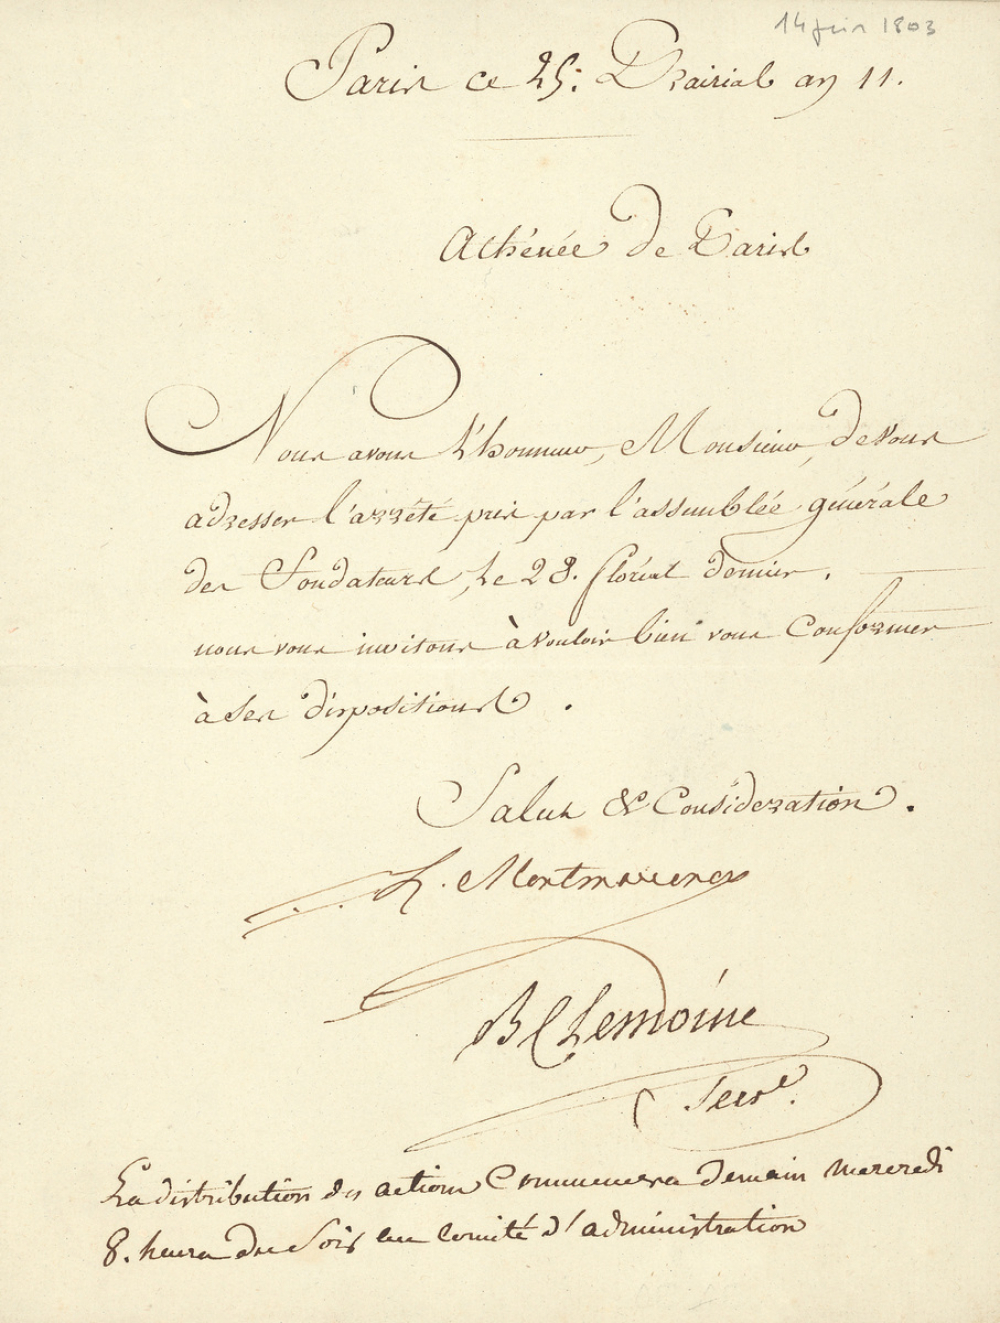 14 juin 1803
Paris ce 25. Prairial an 11.
Athénée de Paris
Nous avons l'honneur, Monsieur, de vous
adresser l'arrêté pris par l'assemblée générale
des Fondateurs, le 28. floréal dernier.
nous vous invitons à vouloir bien vous Conformer
à ses dispositions.
Salut & Considération.
Lemoine
Secre.
La distribution des actions Commencera demain mercredi
8. heures du soir au comité d'administration